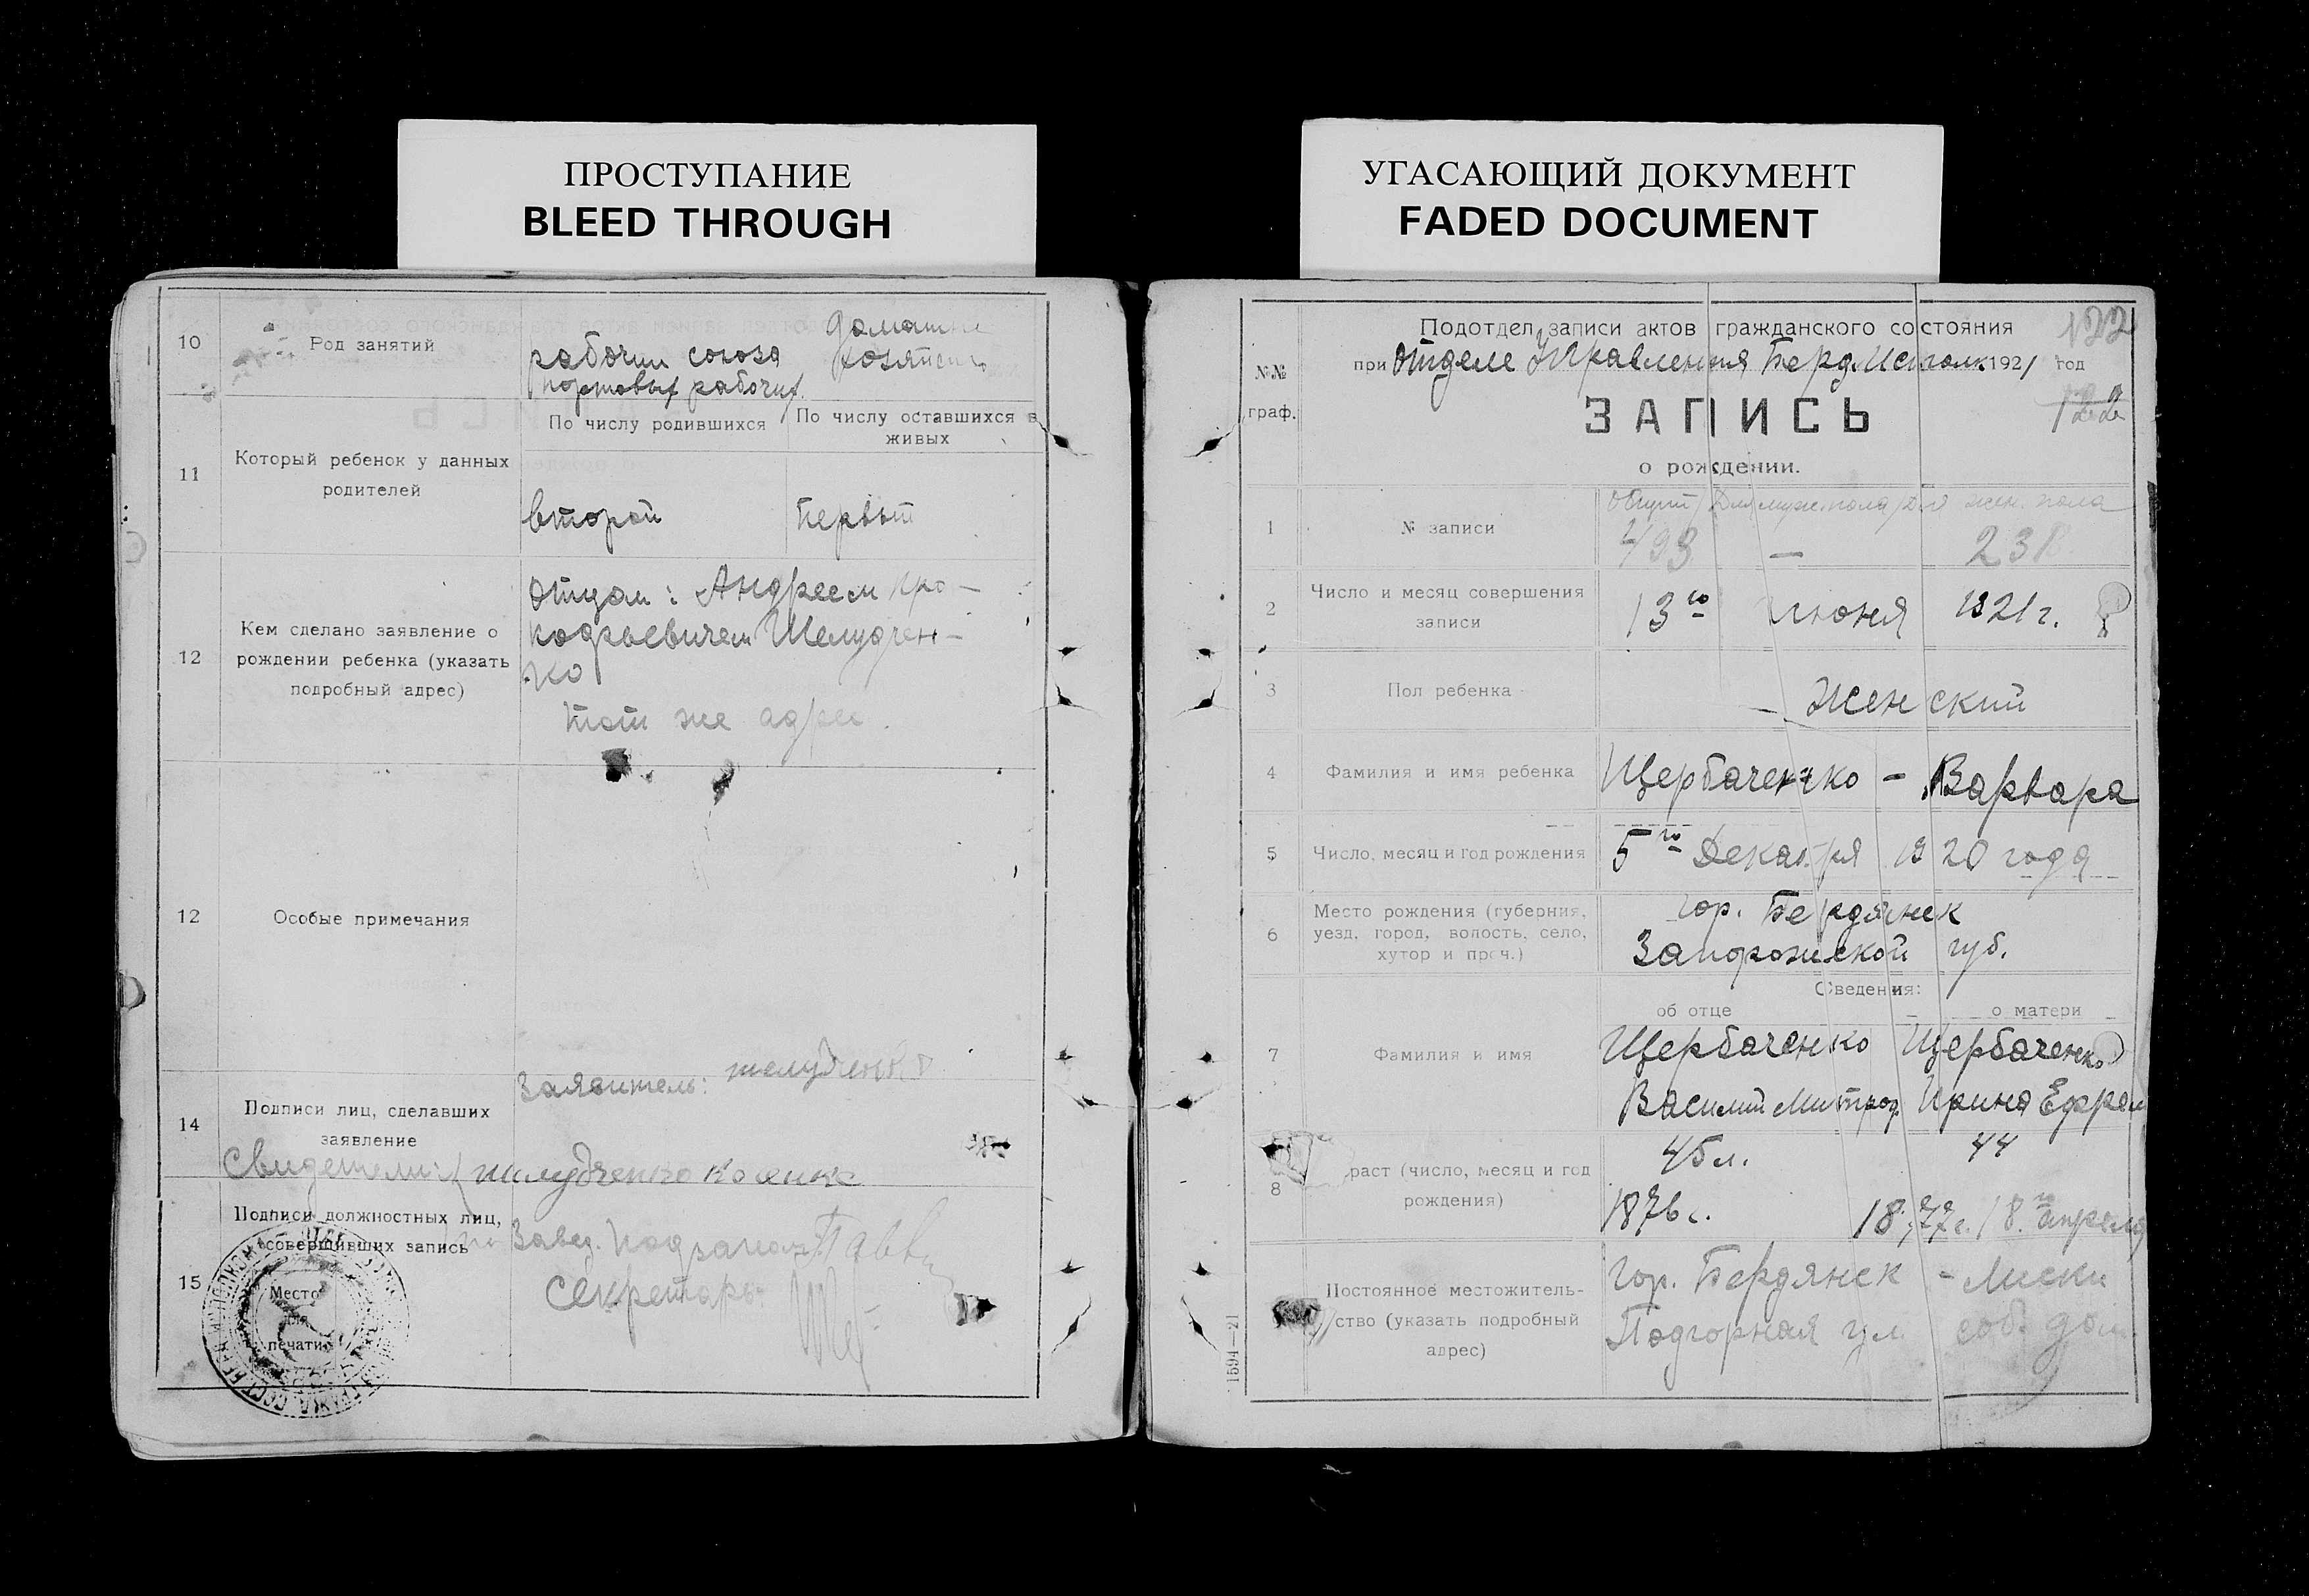 ПРОСТУПАНИЕ
BLEED THROUGH
УГАСАЮЩИЙ ДОКУМЕНТ
FADED DOCUMENT
10
Род занятий
рабочий союза
портовых рабочих
11
Который ребенок у данных
родителей
По числу родившихся
По числу оставшихся в
живых
второй
первый
12
Кем сделано заявление о
рождении ребенка (указать
подробный адрес)
отцом: Андреем Про-
кофьевичем Шелудчен-
ко
тот же адрес.
12
Особые примечания
14
Подписи лиц, сделавших
заявление
Заявитель:
Свидетели:
15
Подписи должностных лиц,
совершивших запись
Завед.
Секретарь
Место
для
печати
№№
граф.
Подотдел записи актов гражданского состояния
122
при Отделе Управления Берд. Исполк. 1921 год
122
ЗАПИСЬ
о рождении.
1
№ записи
Общий Для муж. пола Для жен. пола
493 — 238
2
Число и месяц совершения
записи
13го июня 1921 г.
3
Пол ребенка
Женский
4
Фамилия и имя ребенка
Щербаченко - Варвара
5
Число, месяц и год рождения
5го Декабря 1920 года
6
Место рождения (губерния,
уезд, город, волость, село,
хутор и проч.)
гор. Бердянск
Запорожской губ.
Сведения:
об отце
о матери
7
Фамилия и имя
Щербаченко
Василий Митроф.
Щербаченко
Ирина Ефрем
8
раст (число, месяц и год
рождения)
45 л.
1876 г.
44
1877 г. 18го апреля
Постоянное местожитель-
ство (указать подробный
адрес)
Гор. Бердянск - Лиски
Подгорная ул. соб. дом.
1594—21